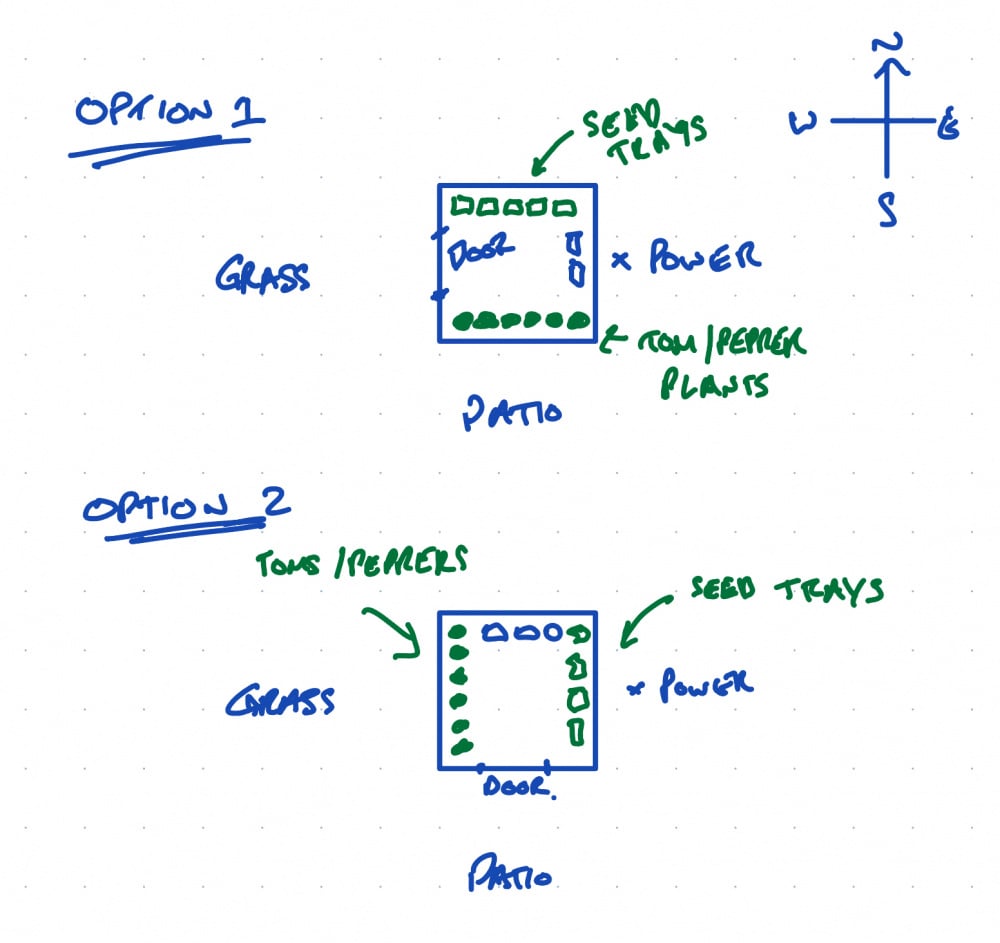 OPTION 1
N
W
E
S
SEED
TRAYS
DOOR
GRASS
x POWER
TOM/PEPPER
PLANTS
PATIO
OPTION 2
TOMS/PEPPERS
SEED TRAYS
GRASS
x POWER
DOOR.
PATIO